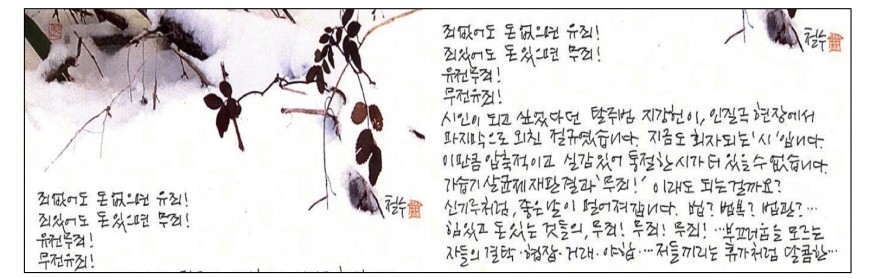 죄없어도 돈없으면 유죄!
죄있어도 돈있으면 무죄!
유전무죄!
무전유죄!
철수
죄없어도 돈없으면 유죄!
죄있어도 돈있으면 무죄!
유전무죄!
무전유죄!
철수
시인이 되고 싶었다던 탈주범 지강헌이, 인질극 현장에서
마지막으로 외친 절규였습니다. 지금도 회자되는 '시'입니다.
이만큼 압축적이고 실감있어 통절한 시가 더 있을 수 없습니다.
가습기 살균제 재판결과 '무죄!' 이래도 되는걸까요?
신기루처럼, 좋은 날이 멀어져갑니다. 법? 법복? 법관?…
힘있고 돈있는 것들의, 무죄! 무죄! 무죄! …부끄러움을 모르는
자들의 결탁·협잡·거래·야합…저들끼리는 휴가처럼 달콤한…